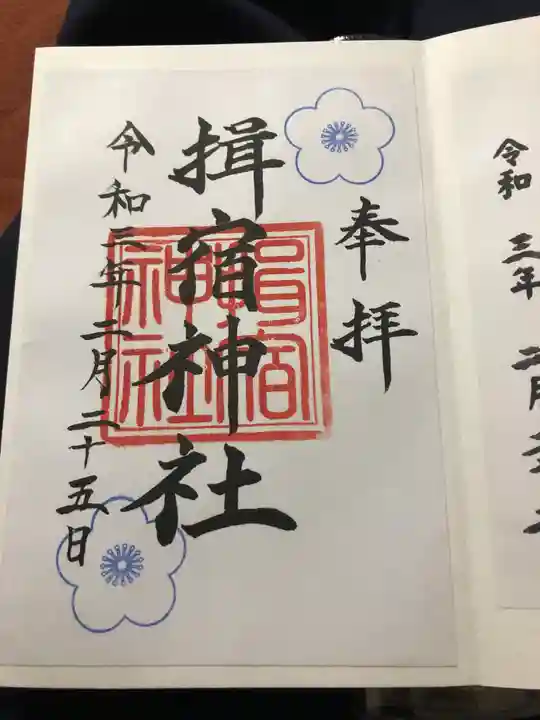 奉拝
揖宿神社
令和三年二月二十五日
令和 三年 二月